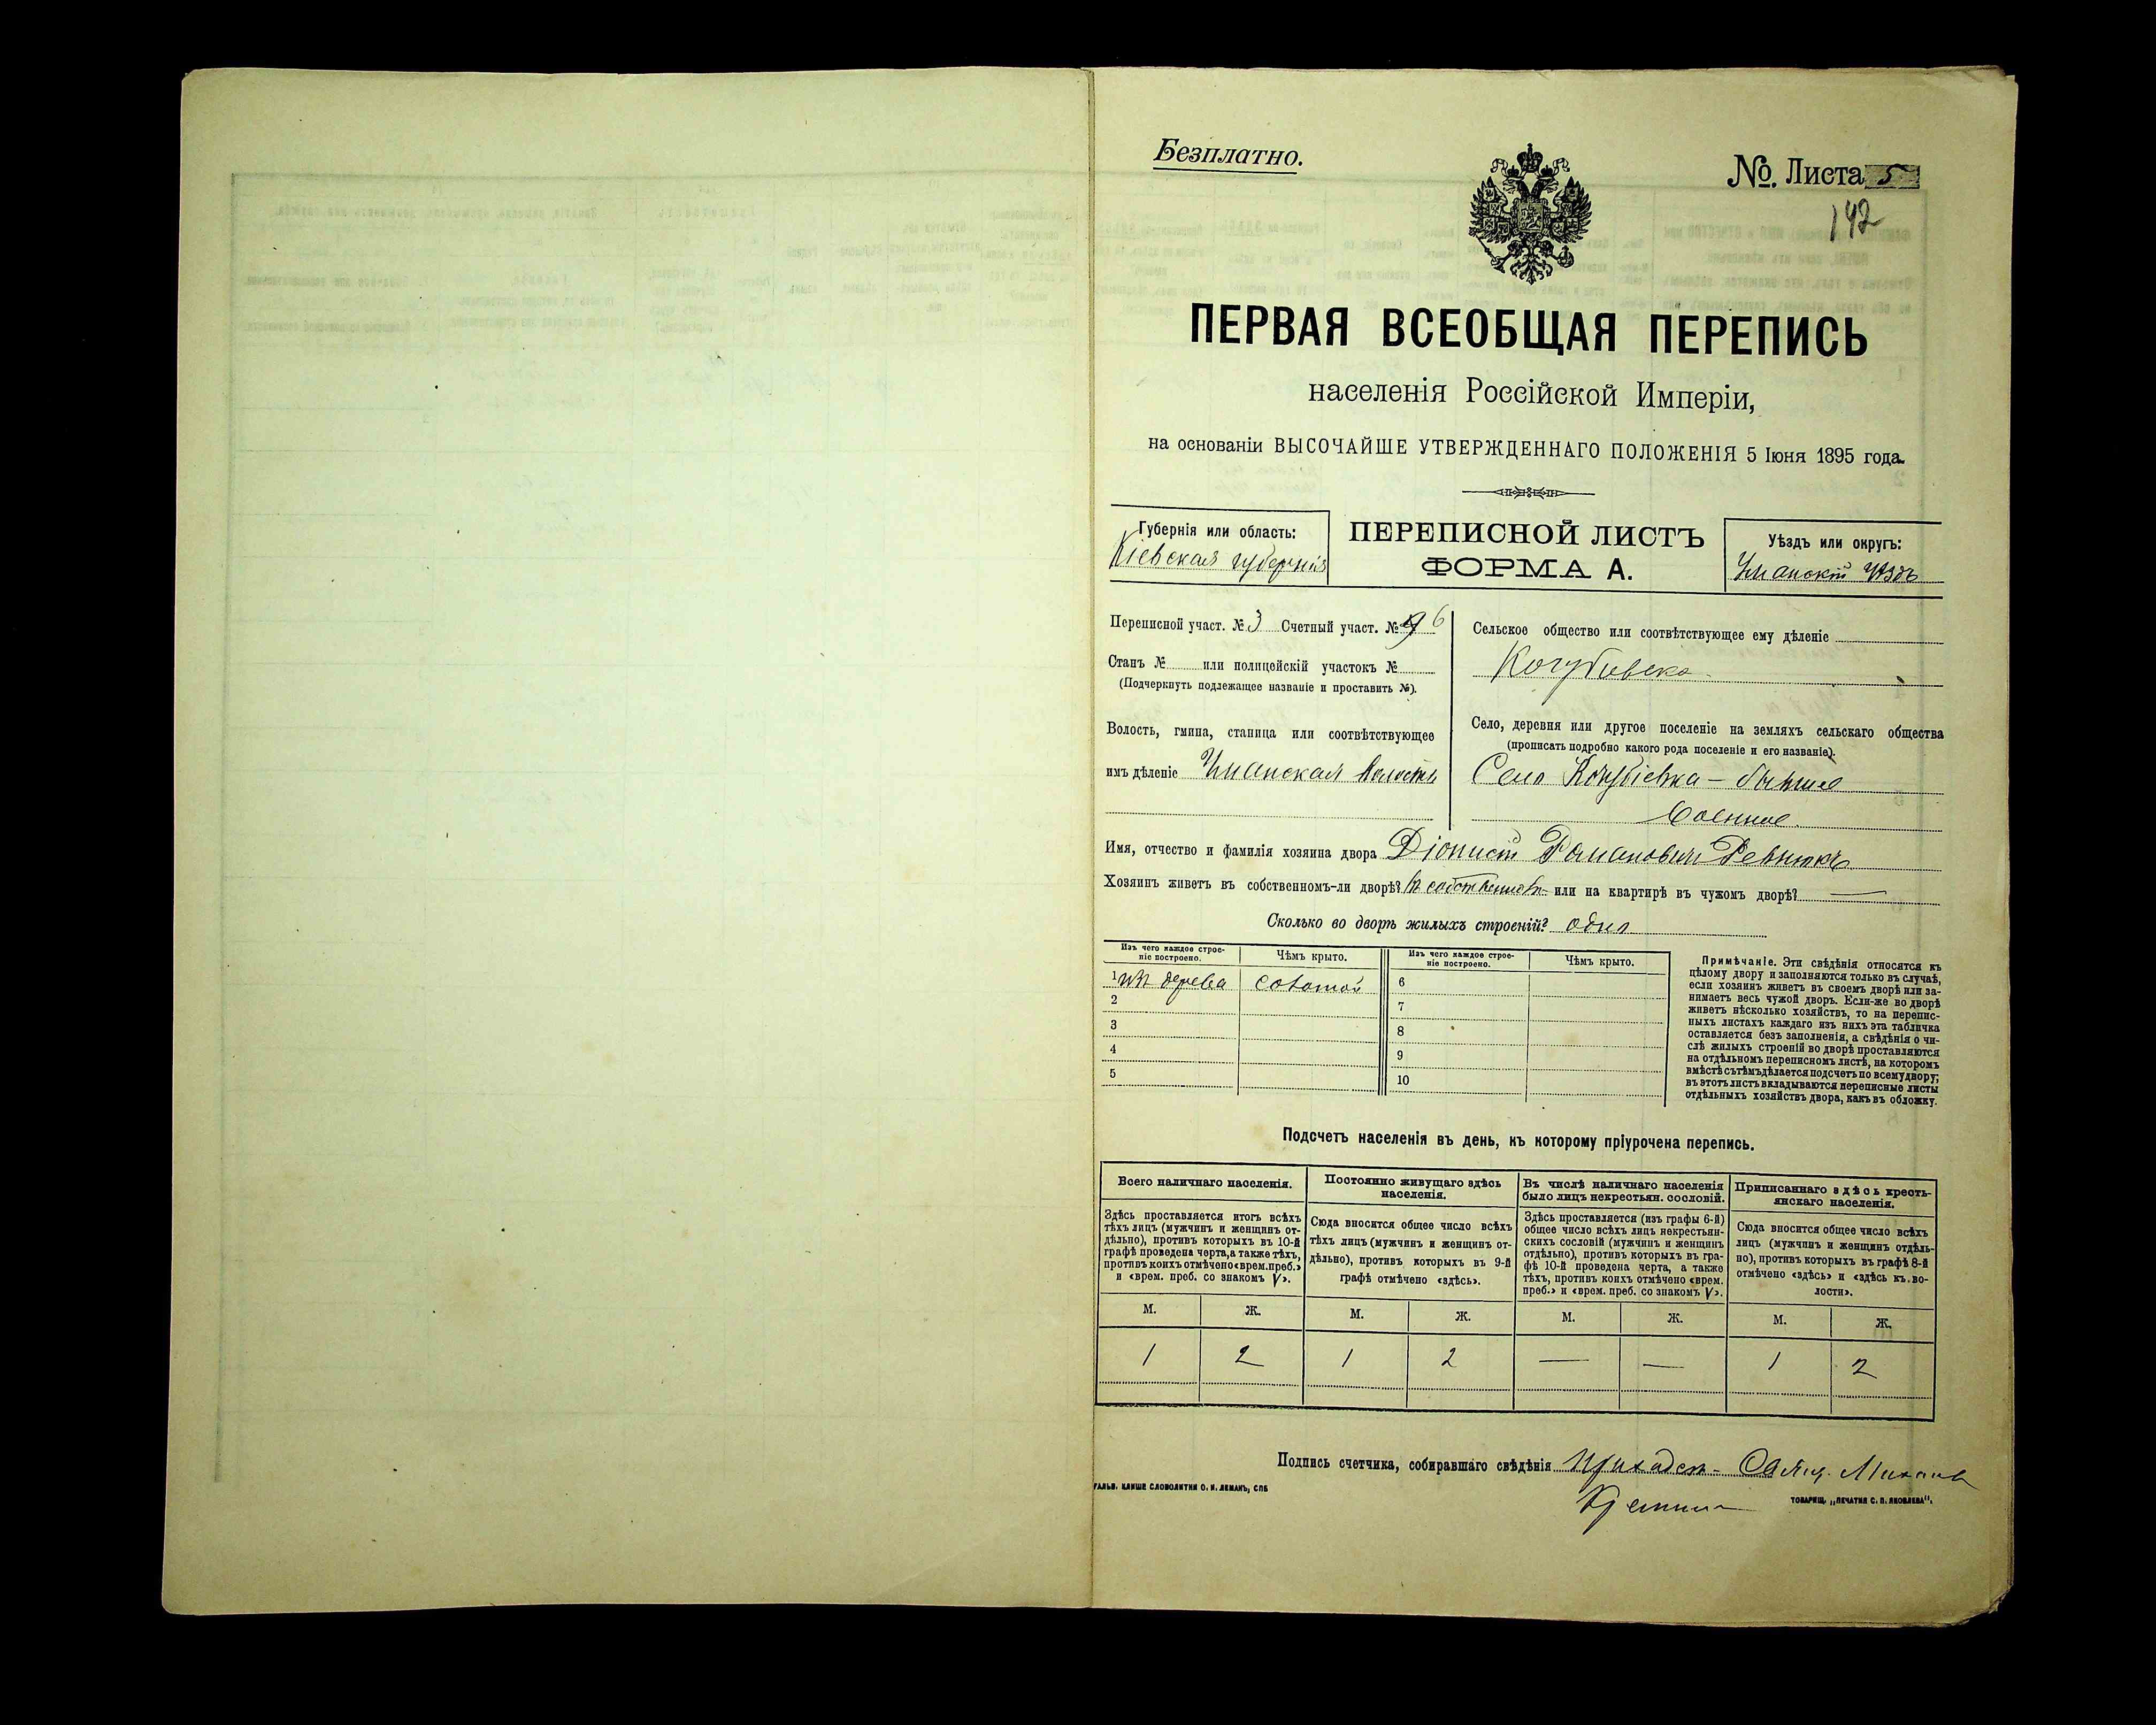 Безплатно.
№. Листа 5
142
ПЕРВАЯ ВСЕОБЩАЯ ПЕРЕПИСЬ
населенія Россійской Имперіи,
на основаніи ВЫСОЧАЙШЕ УТВЕРЖДЕННАГО ПОЛОЖЕНІЯ 5 Іюня 1895 года.
Губернія или область:
Кіевская губернія
ПЕРЕПИСНОЙ ЛИСТЪ
ФОРМА А.
Уѣздъ или округъ:
Уманскій уѣздъ
Переписной участ. № 3 Счетный участ. № 6
Станъ № или полицейскій участокъ №
(Подчеркнуть подлежащее названіе и проставить №).
Волость, гмина, станица или соотвѣтствующее
имъ дѣленіе Уманская волость
Сельское общество или соотвѣтствующее ему дѣленіе
Село, деревня или другое поселеніе на земляхъ сельскаго общества
(прописать подробно какого рода поселеніе и его названіе).
Село
Имя, отчество и фамилія хозяина двора Діонисій Романовичъ Ревнюкъ
Хозяинъ живетъ въ собственномъ-ли дворѣ? въ собственномъ или на квартирѣ въ чужомъ дворѣ? —
Сколько во дворѣ жилыхъ строеній? одно
Изъ чего каждое строе-
ніе построено.
Чѣмъ крыто.
1 изъ дерева соломой
2
3
4
5
Изъ чего каждое строе-
ніе построено.
Чѣмъ крыто.
6
7
8
9
10
Примѣчаніе. Эти свѣдѣнія относятся къ
цѣлому двору и заполняются только въ случаѣ,
если хозяинъ живетъ въ своемъ дворѣ или за-
нимаетъ весь чужой дворъ. Если-же во дворѣ
живетъ нѣсколько хозяйствъ, то на перепис-
ныхъ листахъ каждаго изъ нихъ эта табличка
оставляется безъ заполненія, а свѣдѣнія о чи-
слѣ жилыхъ строеній во дворѣ проставляются
на отдѣльномъ переписномъ листѣ, на которомъ
вмѣстѣ съ тѣмъ дѣлается подсчетъ по всему двору;
въ этотъ листъ вкладываются переписные листы
отдѣльныхъ хозяйствъ двора, какъ въ обложку.
Подсчетъ населенія въ день, къ которому пріурочена перепись.
Всего наличнаго населенія.
Здѣсь проставляется итогъ всѣхъ
тѣхъ лицъ (мужчинъ и женщинъ от-
дѣльно), противъ которыхъ въ 10-й
графѣ проведена черта, а также тѣхъ,
противъ коихъ отмѣчено «врем. преб.»
и «врем. преб. со знакомъ V».
М. Ж.
1 2
Постоянно живущаго здѣсь
населенія.
Сюда вносится общее число всѣхъ
тѣхъ лицъ (мужчинъ и женщинъ от-
дѣльно), противъ которыхъ въ 9-й
графѣ отмѣчено «здѣсь».
М. Ж.
1 2
Въ числѣ наличнаго населенія
было лицъ некрестьян. сословій.
Здѣсь проставляется (изъ графы 6-й)
общее число всѣхъ лицъ некрестьян-
скихъ сословій (мужчинъ и женщинъ
отдѣльно), противъ которыхъ въ гра-
фѣ 10-й проведена черта, а также
тѣхъ, противъ коихъ отмѣчено «врем.
преб.» и «врем. преб. со знакомъ V».
М. Ж.
— —
Приписаннаго здѣсь кресть-
янскаго населенія.
Сюда вносится общее число всѣхъ
лицъ (мужчинъ и женщинъ отдѣль-
но), противъ которыхъ въ графѣ 8-й
отмѣчено «здѣсь» и «здѣсь къ во-
лости».
М. Ж.
1 2
Подпись счетчика, собиравшаго свѣдѣнія
ГАЛЬВ. КЛИШЕ СЛОВОЛИТНИ О. И. ЛЕМАНЪ, СПБ
ТОВАРИЩ. „ПЕЧАТНЯ С. П. ЯКОВЛЕВА".